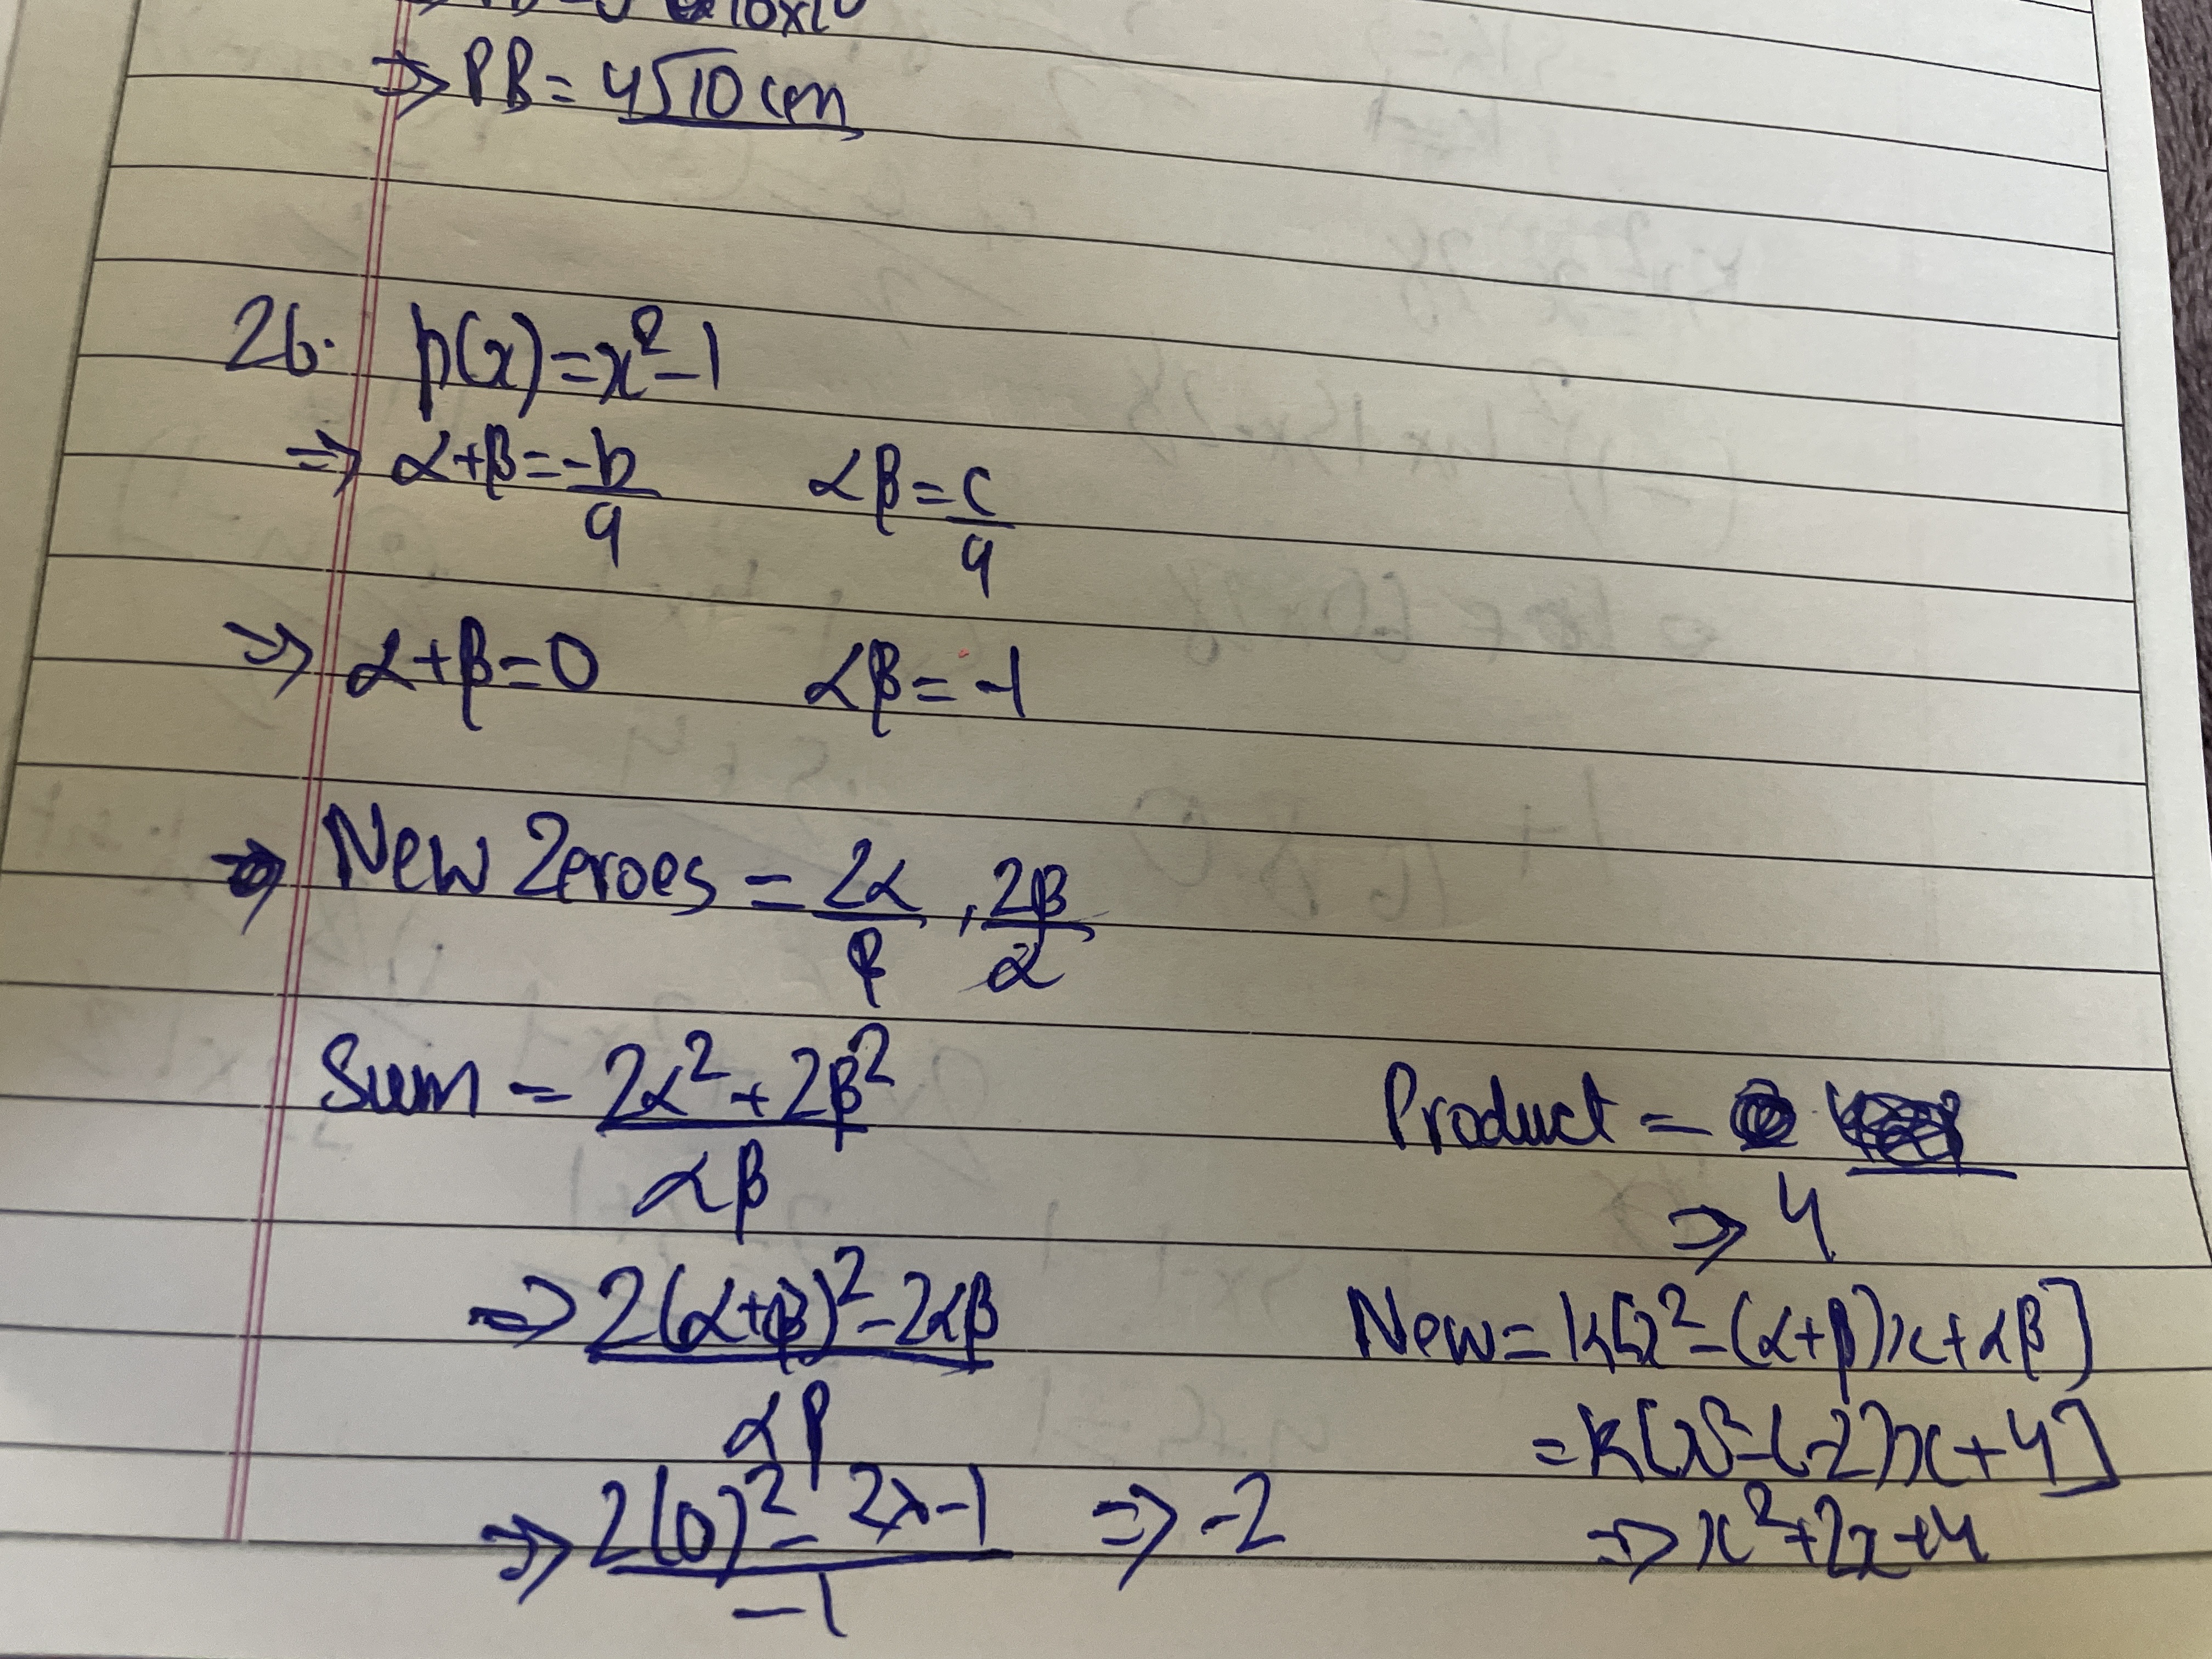 ⇒ PB = 4√10 cm
26. p(x) = x² - 1
⇒ α+β = -b/a αβ = c/a
⇒ α+β = 0 αβ = -1
⇒ New Zeroes = 2α/β , 2β/α
Sum = 2α² + 2β² / αβ
⇒ 2(α+β)² - 2αβ / αβ
⇒ 2(0)² - 2x-1 / -1 ⇒ -2
Product =
⇒ 4
New = k[x² - (α+β)x + αβ]
= k[x² - (-2)x + 4]
⇒ x² + 2x + 4